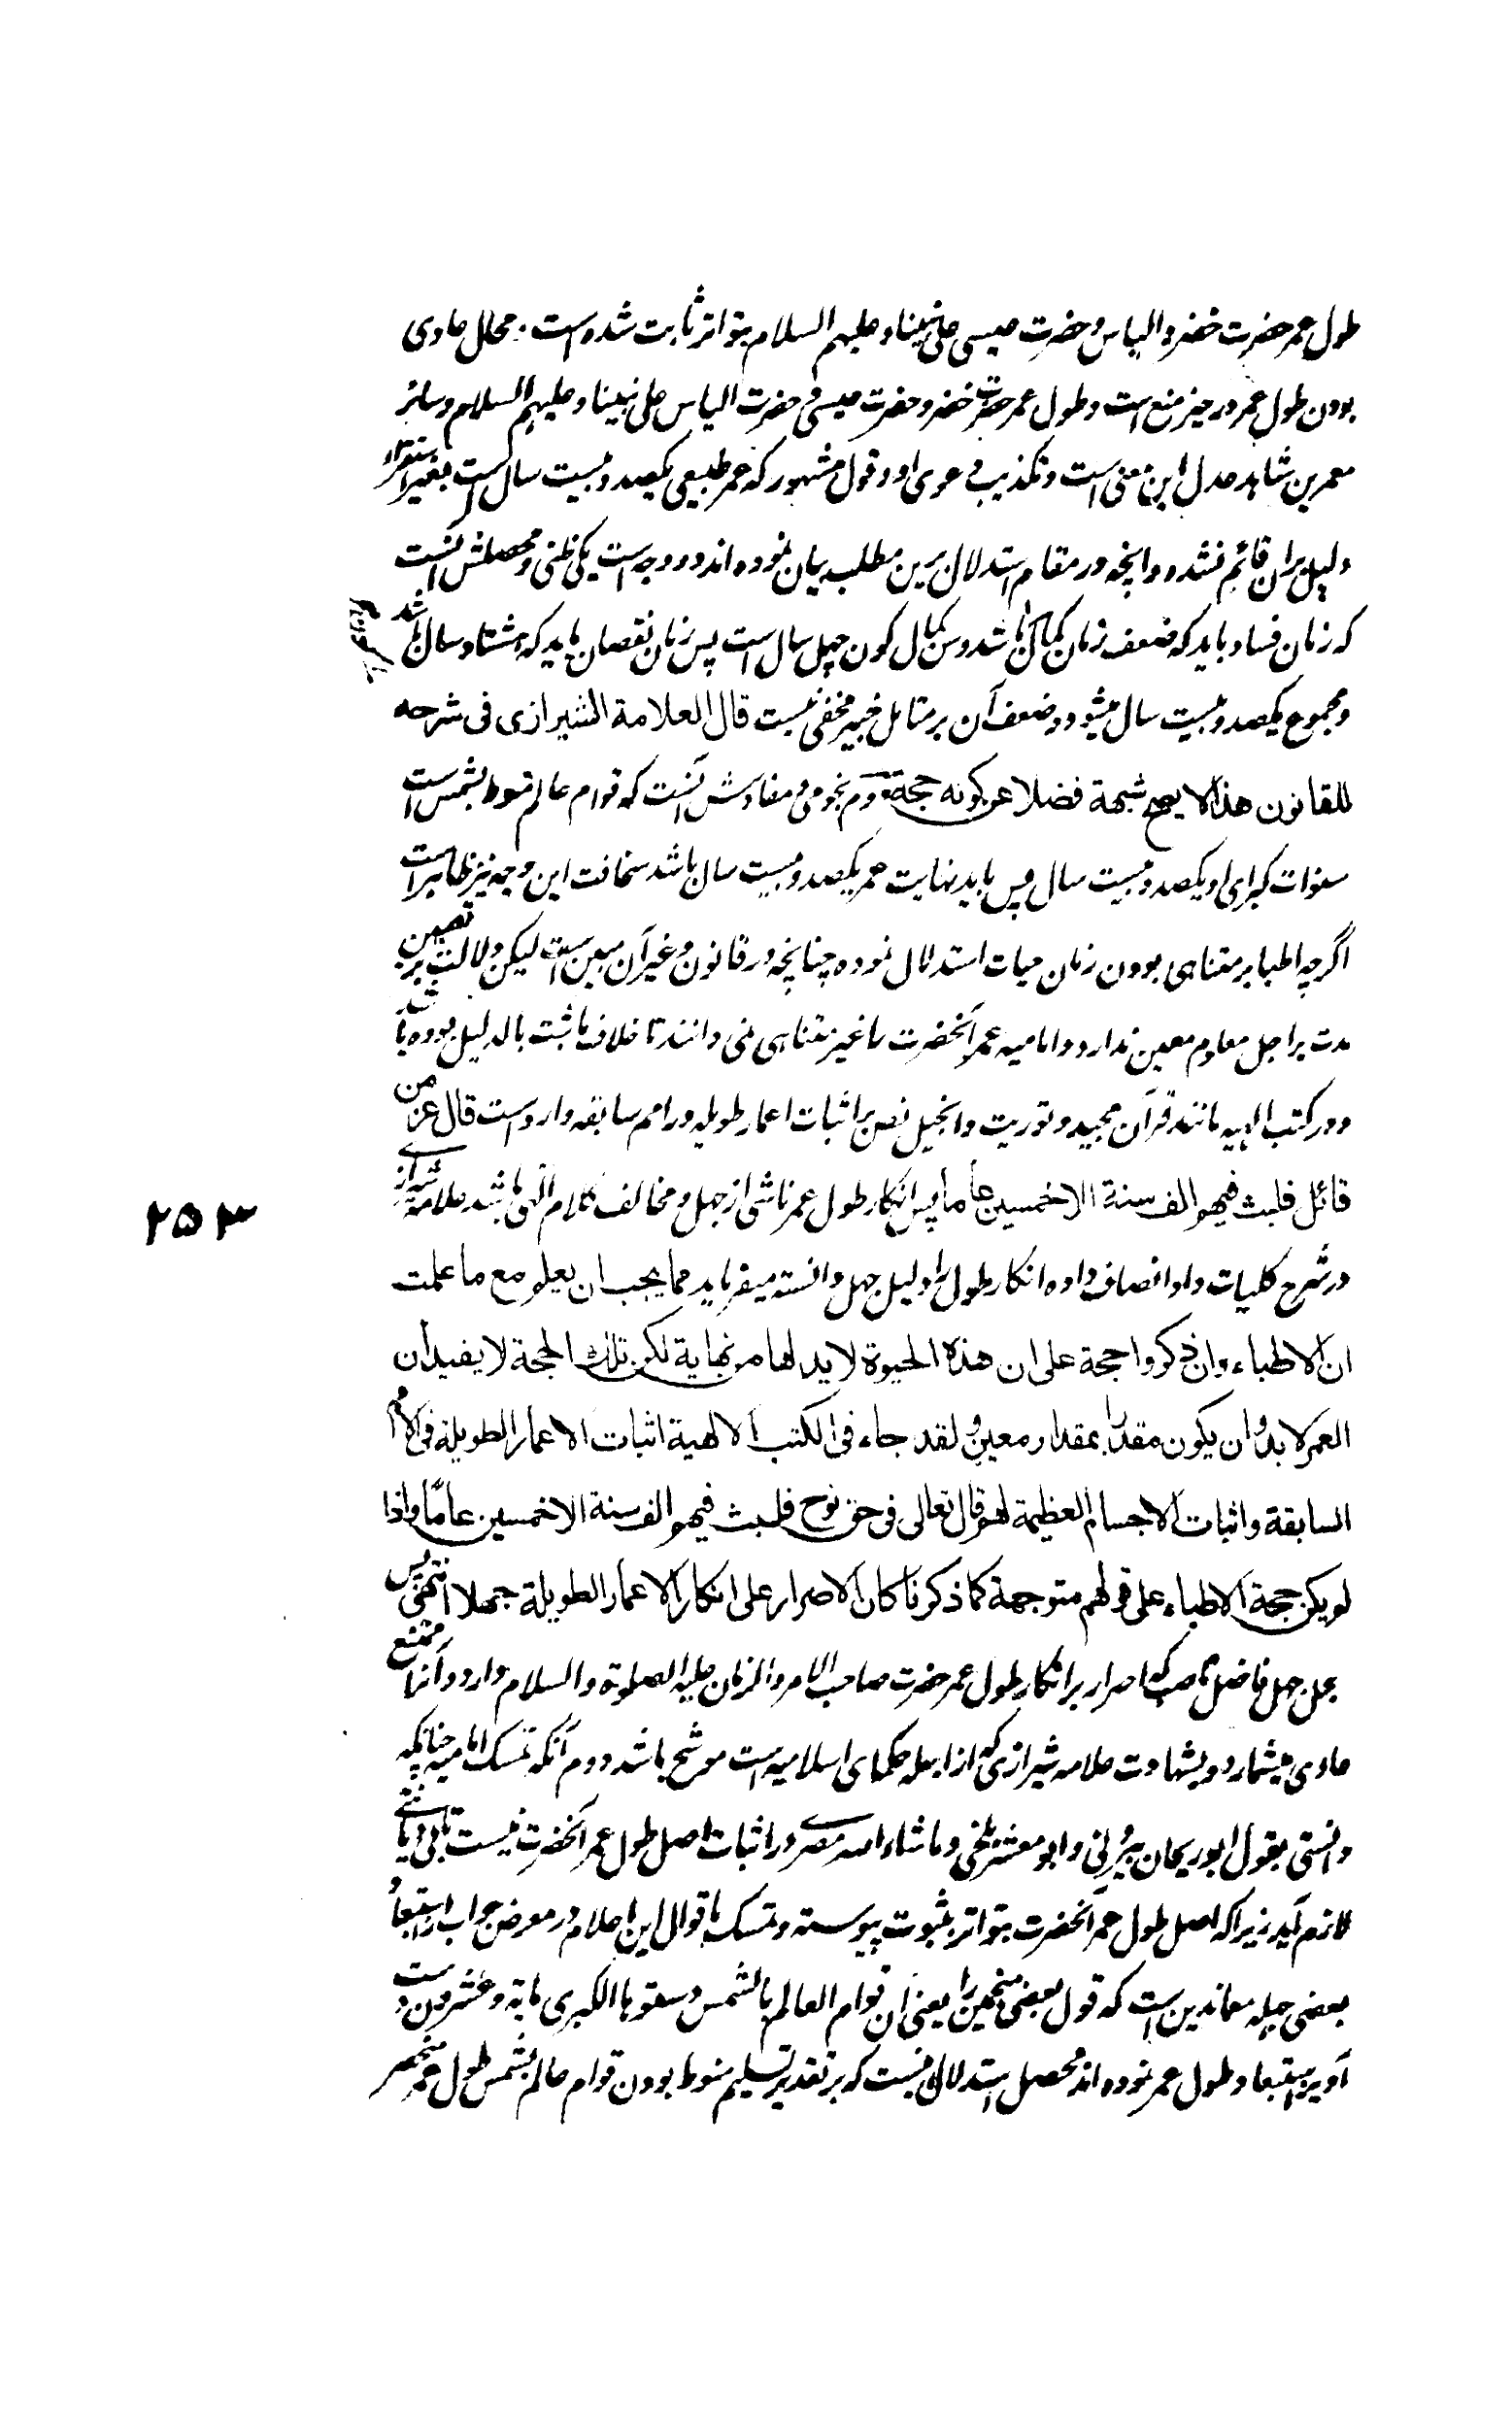 طول عمر حضرت خضر و الیاس و حضرت عیسی علی نبینا و علیهم السلام بتواتر ثابت شده است محال عادی
بودن طول عمر در حیز منع است و طول عمر حضرت خضر و حضرت عیسی و حضرت الیاس علی نبینا و علیهم السلام و سائر
معمرین شاهد عدل این معنی است و تکذیب دعوی او و قول مشهور که عمر طبیعی یکصد و بیست سال است بغیر استقراء
دلیل بران قائم نشده و انچه در مقام استدلال برین مطلب بیان نموده اند دو وجه است یکی ظنی و محصلش آنست
که زمان فساد باید که ضعف زمان کمال باشد و سن کمال کون چهل سال است پس زمان نقصان باید که هشتاد سال باشد
و مجموع یکصد و بیست سال میشود و ضعف آن بر متامل خبیر مخفی نیست قال العلامة الشیرازی فی شرحه
للقانون هذا لا یصح شبهة فضلا عن کونه حجة دوم نجومی و مفادش آنست که قوام عالم منوط بشمس است
سنوات کبرای او یکصد و بیست سال پس باید نهایت عمر یکصد و بیست سال باشد سخافت این وجه نیز ظاهر است
اگرچه اطبا بر متناهی بودن زمان حیات استدلال نموده چنانچه در قانون و غیر آن مبین است لیکن دلالت بر تعیین
مدت بر اجل معلوم معین ندارد و امامیه عمر آنحضرت را غیر متناهی نمی دانند تا خلاف ما ثبت بالدلیل بوده باشد
و در کتب الهیه مانند قرآن مجید و توریت و انجیل نص بر اثبات اعمار طویله در امم سابقه وارد است قال عز من
قائل فلبث فیهم الف سنة الا خمسین عاما پس انکار طول عمر ناشی از جهل و مخالف کلام الهی باشد علامه شیرازی
در شرح کلیات داد انصاف داده انکار طول را دلیل جهل دانسته میفرماید مما یجب ان یعلم مع ما علمت
ان الاطباء وان ذکروا حجة علی ان هذه الحیوة لا بد لها من نهایة لکن تلک الحجة لا یفید ان
العمر لا بد و ان یکون مقدرا بمقدار معین و لقد جاء فی الکتب الالهیة اثبات الاعمار الطویلة فی الامم
السابقة واثبات الاجسام العظیمة لهم قال تعالی فی حق نوح فلبث فیهم الف سنة الا خمسین عامًا واذا
لم یکن حجة الاطباء علی قولهم متوجهة کما ذکرنا کان الاصرار علی انکار الاعمار الطویلة جهلا انتهی پس
جهل فاضل ناصب که اصرار بر انکار طول عمر حضرت صاحب الامر و الزمان علیه الصلوة والسلام دارد و آنرا ممتنع
عادی میشمارد و بشهادت علامه شیرازی که از اجله حکمای اسلامیه است موشح باشد دوم آنکه تمسک امامیه چنانکه
دانستی بقول ابو ریحان بیرونی و ابو معشر بلخی و ماشاء الله مصری در اثبات اصل طول عمر آنحضرت نیست
لازم آید زیرا که اصل طول عمر آنحضرت بتواتر بثبوت پیوسته و تمسک باقوال این اعلام در معرض جواب استبعاد
بعضی جهله معاندین است که قول بعضی منجمین را یعنی ان قوام العالم بالشمس و سنوها الکبری مایة و عشرون دست
آویز استبعاد طول عمر نموده اند محصل استدلال نیست که بر تقدیر تسلیم منوط بودن قوام عالم بشمس طول عمر منحصر
۲۵۳